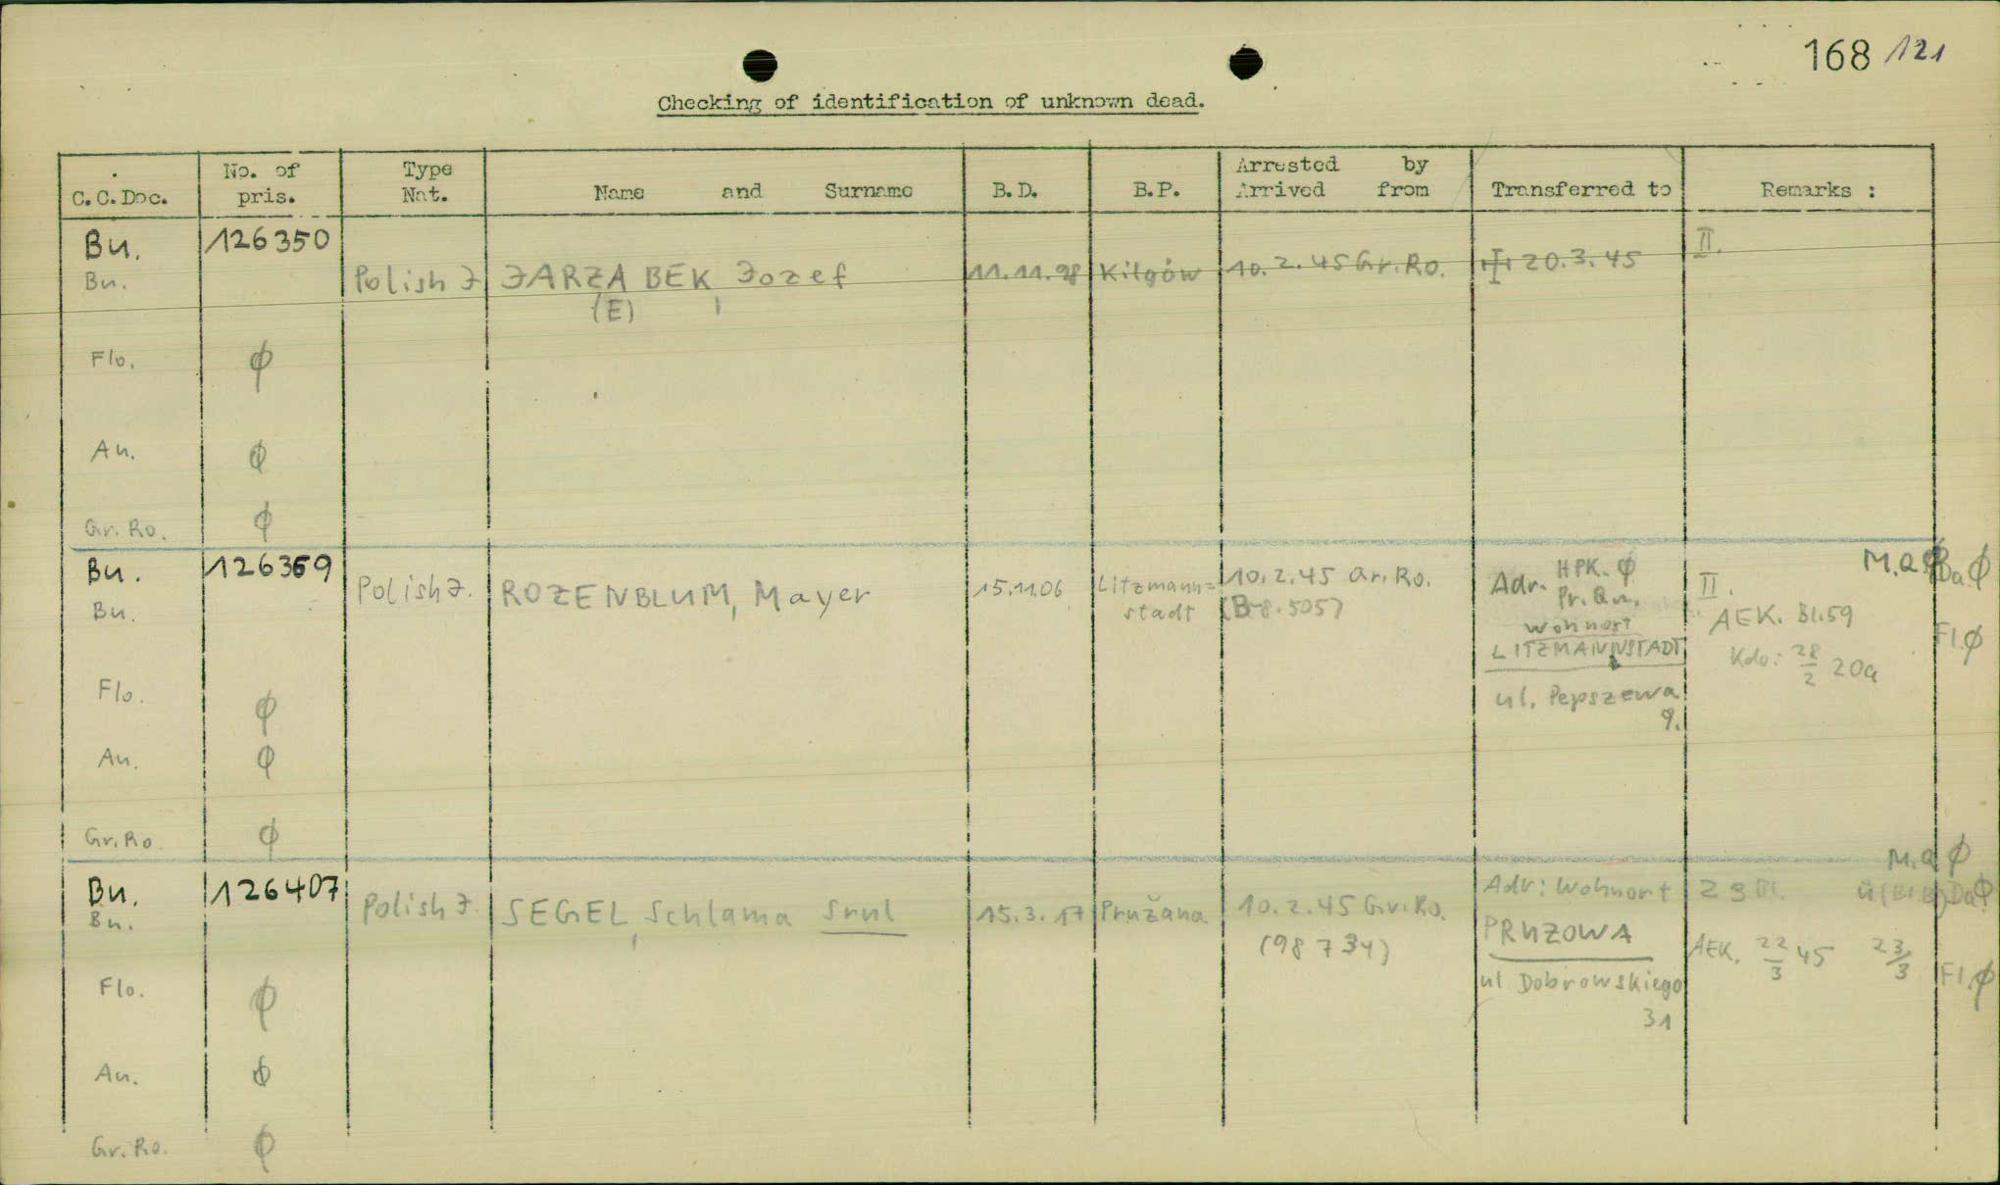 168 121
Checking of identification of unknown dead.
C.C.Doc. No. of pris. Type Nat. Name and Surname B.D. B.P. Arrested by Arrived from Transferred to Remarks :
Bu. 126350 II.
Bu. Polish J JARZABEK, Jozef 11.11.98 Kilgów 10.2.45 Gr.Ro. 20.3.45
(E)
Flo. ϕ
Au. ϕ
Gr.Ro. ϕ
Bu. 126369 M.Q. ϕ Da ϕ
Bu. Polish J. ROZENBLUM, Mayer 15.11.06 Litzmann= 10.2.45 Gr.Ro. Adr. HPK. ϕ II.
stadt (B-8.505) Pr. Bu. AEK. Bl.59
Wohnort Fl. ϕ
LITZMANNSTADT Kdo: 28/2 20a
Flo. ϕ ul. Pepszewa
9.
Au. ϕ
Gr.Ro ϕ
M.Q ϕ
Bu. 126407 Adr: Wohnort Da ϕ
Bu. Polish J. SEGEL, Schlama Srul 15.3.17 Pružana 10.2.45 Gr.Ro.
(98734) PRUZOWA AEK. 22/3 45 23/3
Flo. ϕ ul Dobrowskiego Fl. ϕ
31
Au. ϕ
Gr.Ro. ϕ